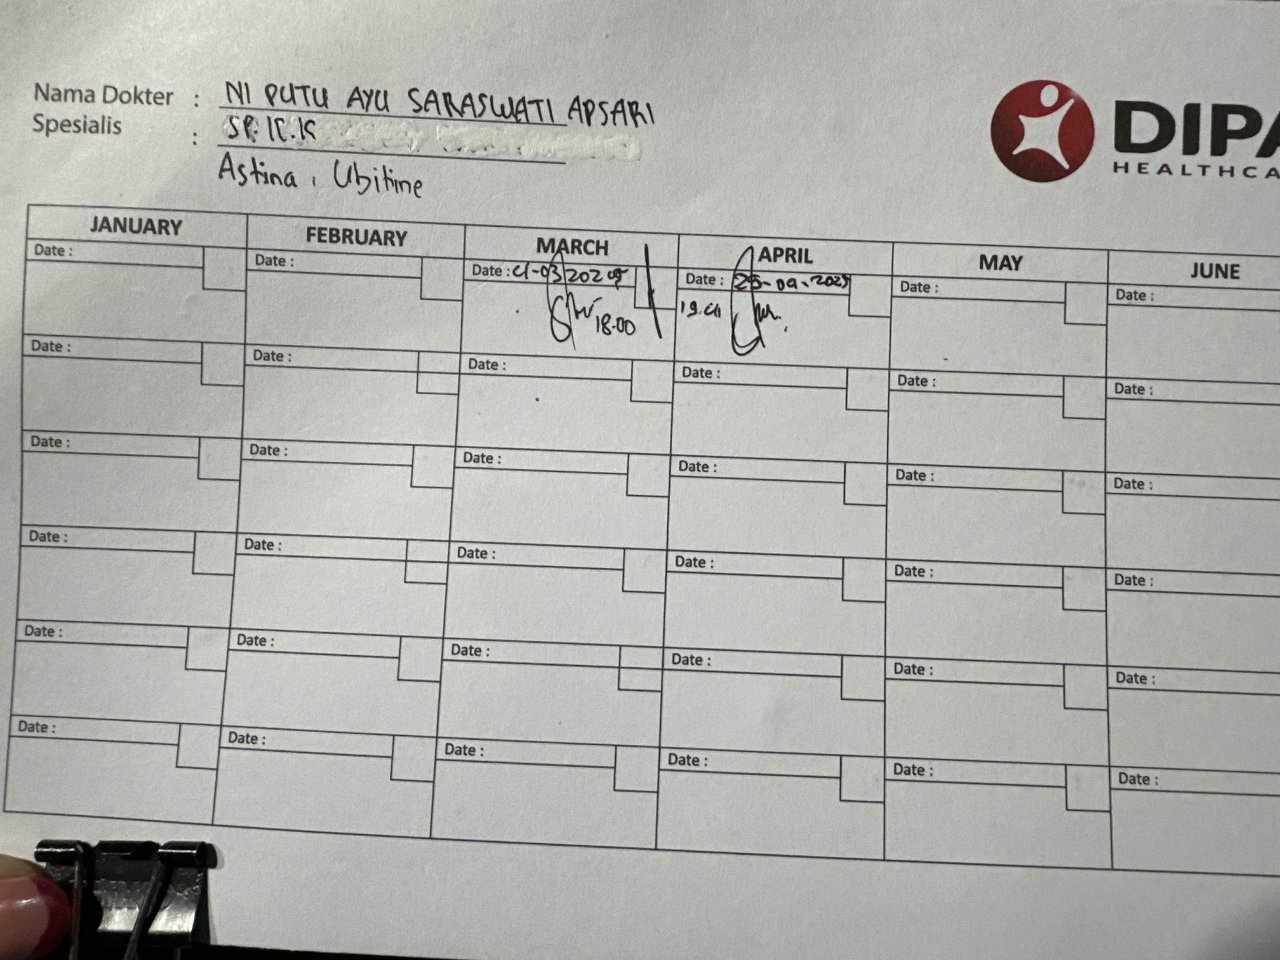 Nama Dokter : NI PUTU AYU SARASWATI APSARI
Spesialis : SP.K.K
Astina, Ubitine
DIPA
HEALTHCA
JANUARY FEBRUARY MARCH APRIL MAY JUNE
Date : Date : Date : Date : 25-04-2025 Date : Date :
18.00
Date : Date : Date : Date : Date : Date :
Date : Date : Date : Date : Date : Date :
Date : Date : Date : Date : Date : Date :
Date : Date : Date : Date : Date : Date :
Date : Date : Date : Date : Date : Date :